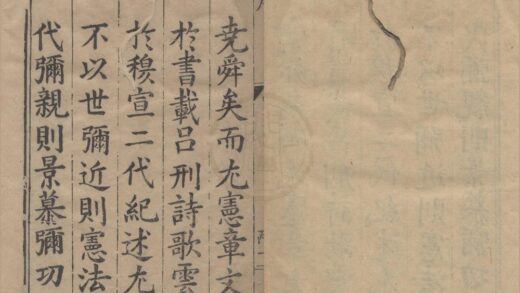 堯舜矣而尤憲章文
於書載呂刑詩歌雲
於穆宣二代紀述尤
不以世彌近則憲法
代彌親則景慕彌切